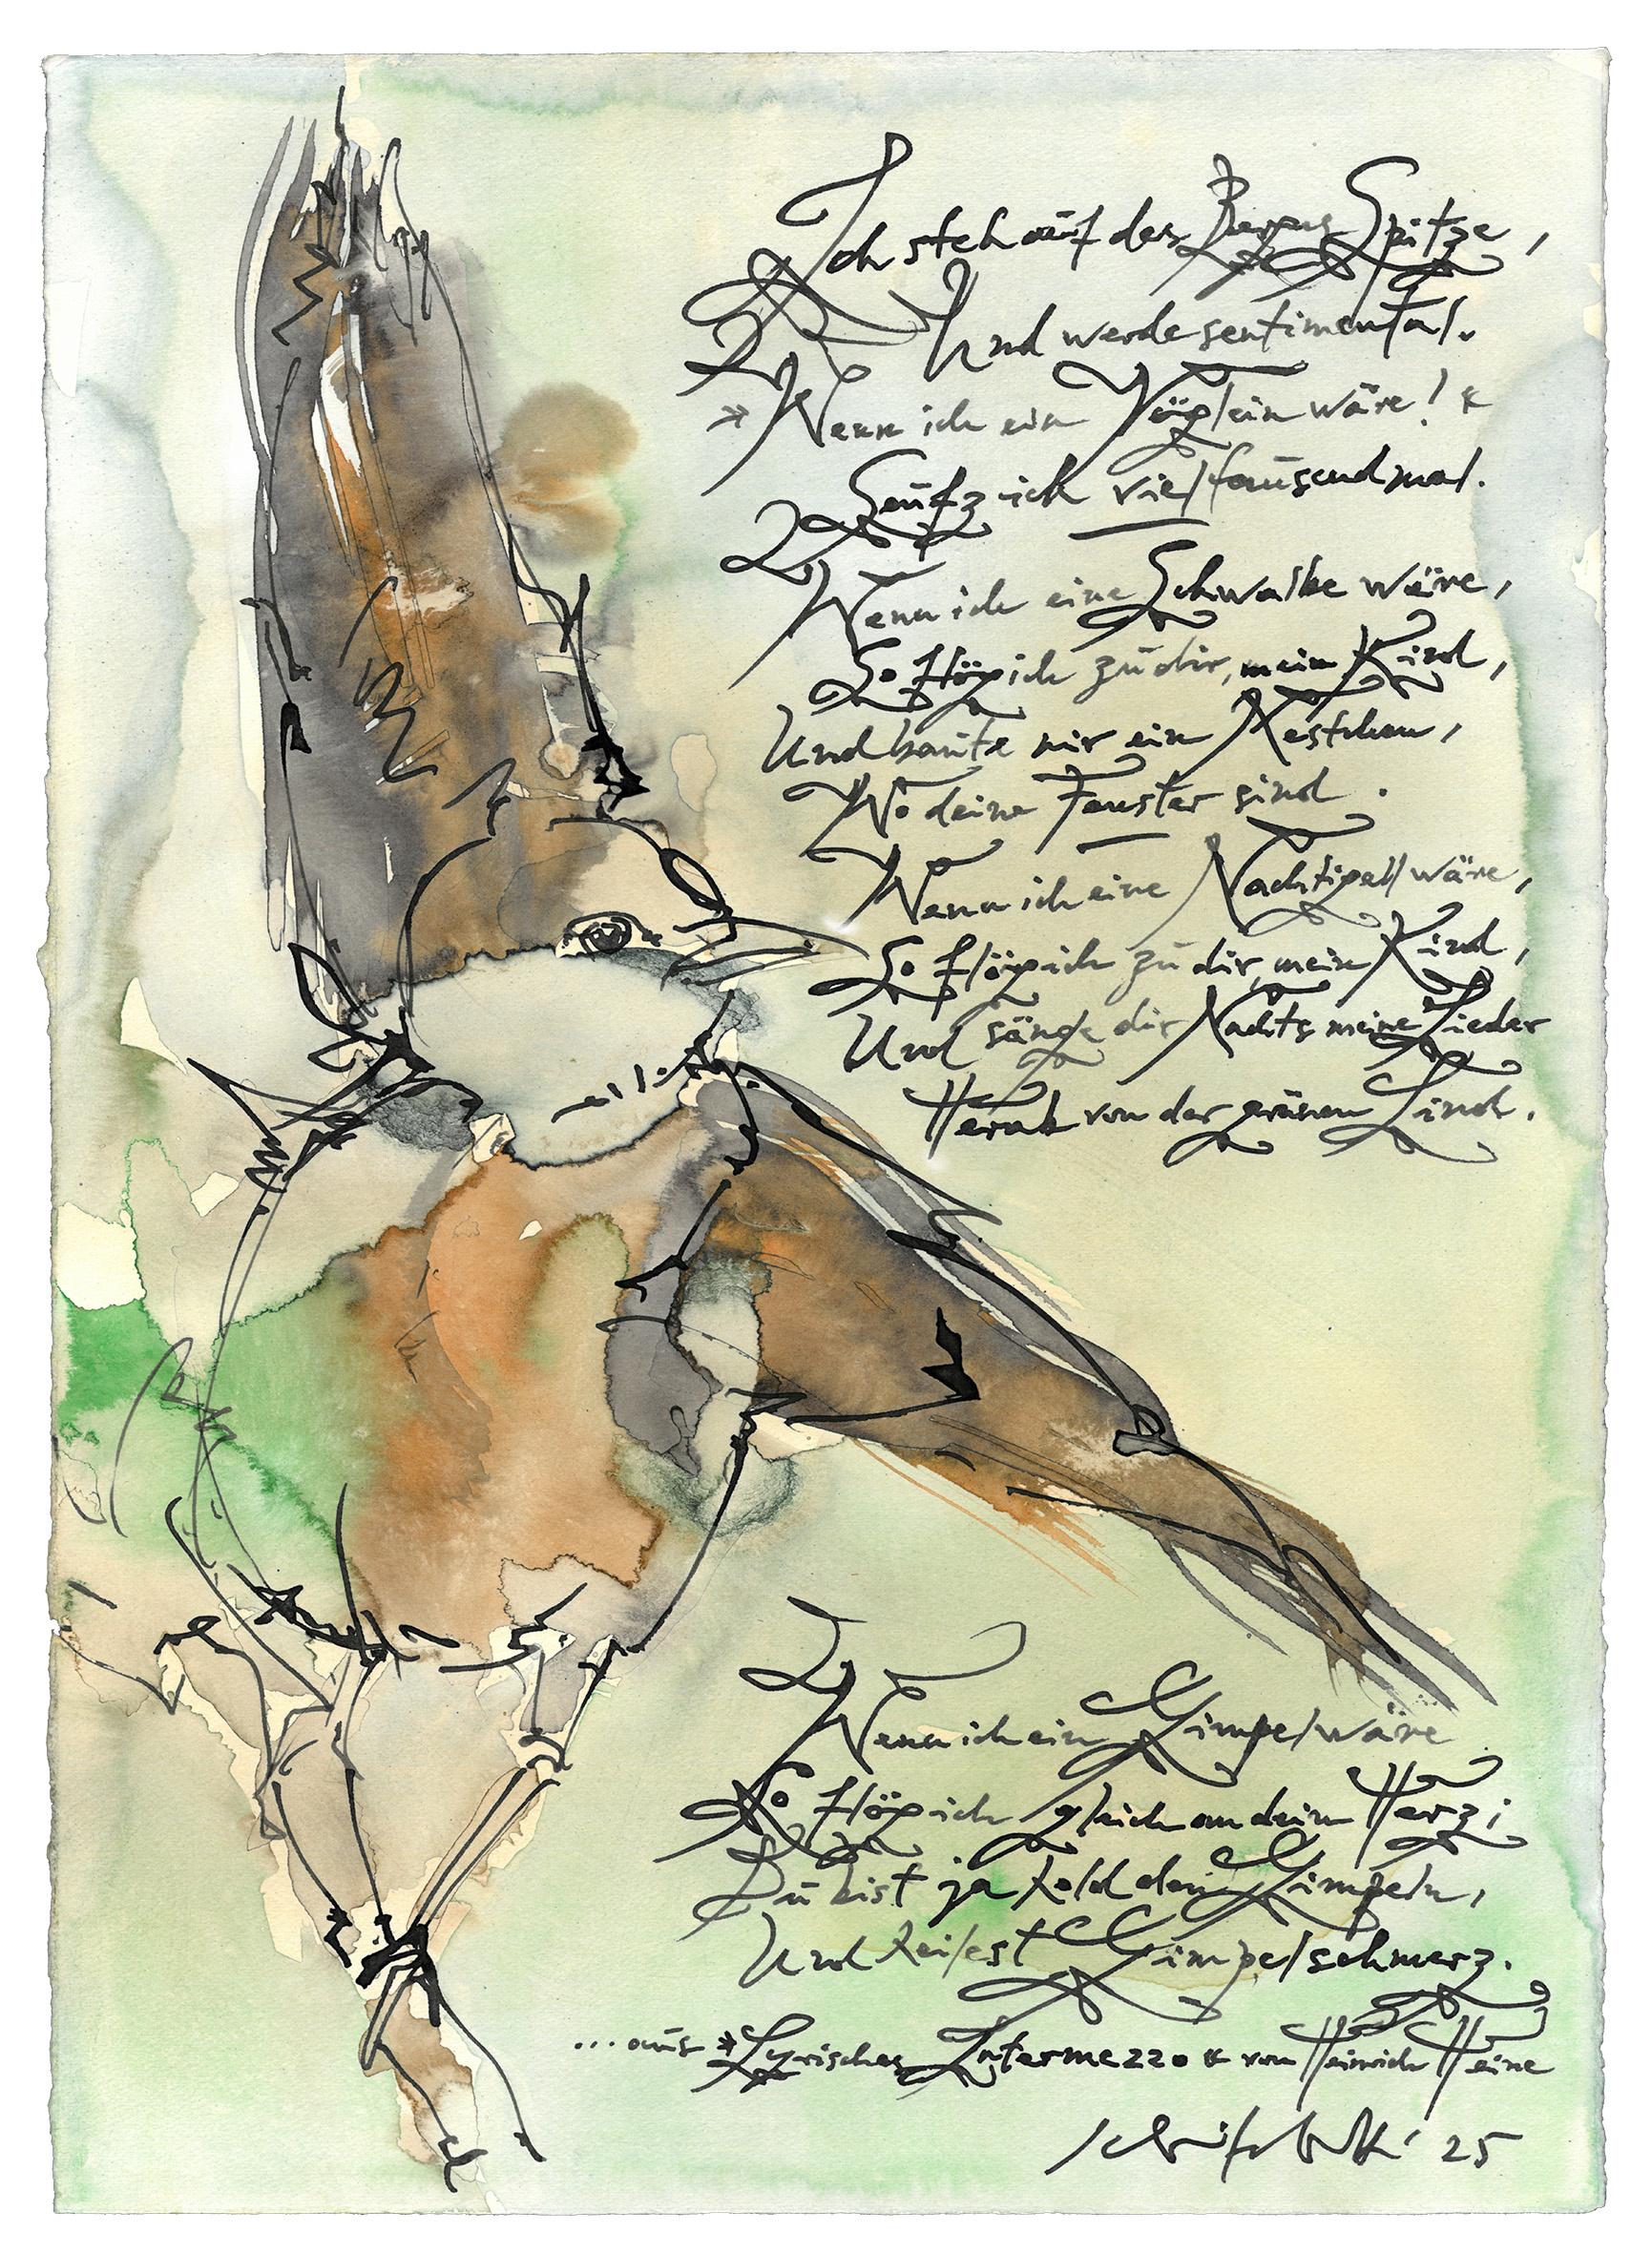 Ich steh auf des Berges Spitze,
Und werde sentimental.
»Wenn ich ein Vöglein wäre!«
Seufz ich vieltausendmal.
Wenn ich eine Schwalbe wäre,
So flög ich zu dir, mein Kind,
Und baute mir ein Nestchen,
Wo deine Fenster sind.
Wenn ich eine Nachtigall wäre,
So flög ich zu dir, mein Kind,
Und sänge dir Nachts meine Lieder
Herab von der grünen Lind.
Wenn ich ein Gimpel wäre
So flög ich gleich an dein Herz;
Du bist ja hold den Gimpeln,
Und heilest Gimpelschmerz.
...aus »Lyrisches Intermezzo« von Heinrich Heine
'25